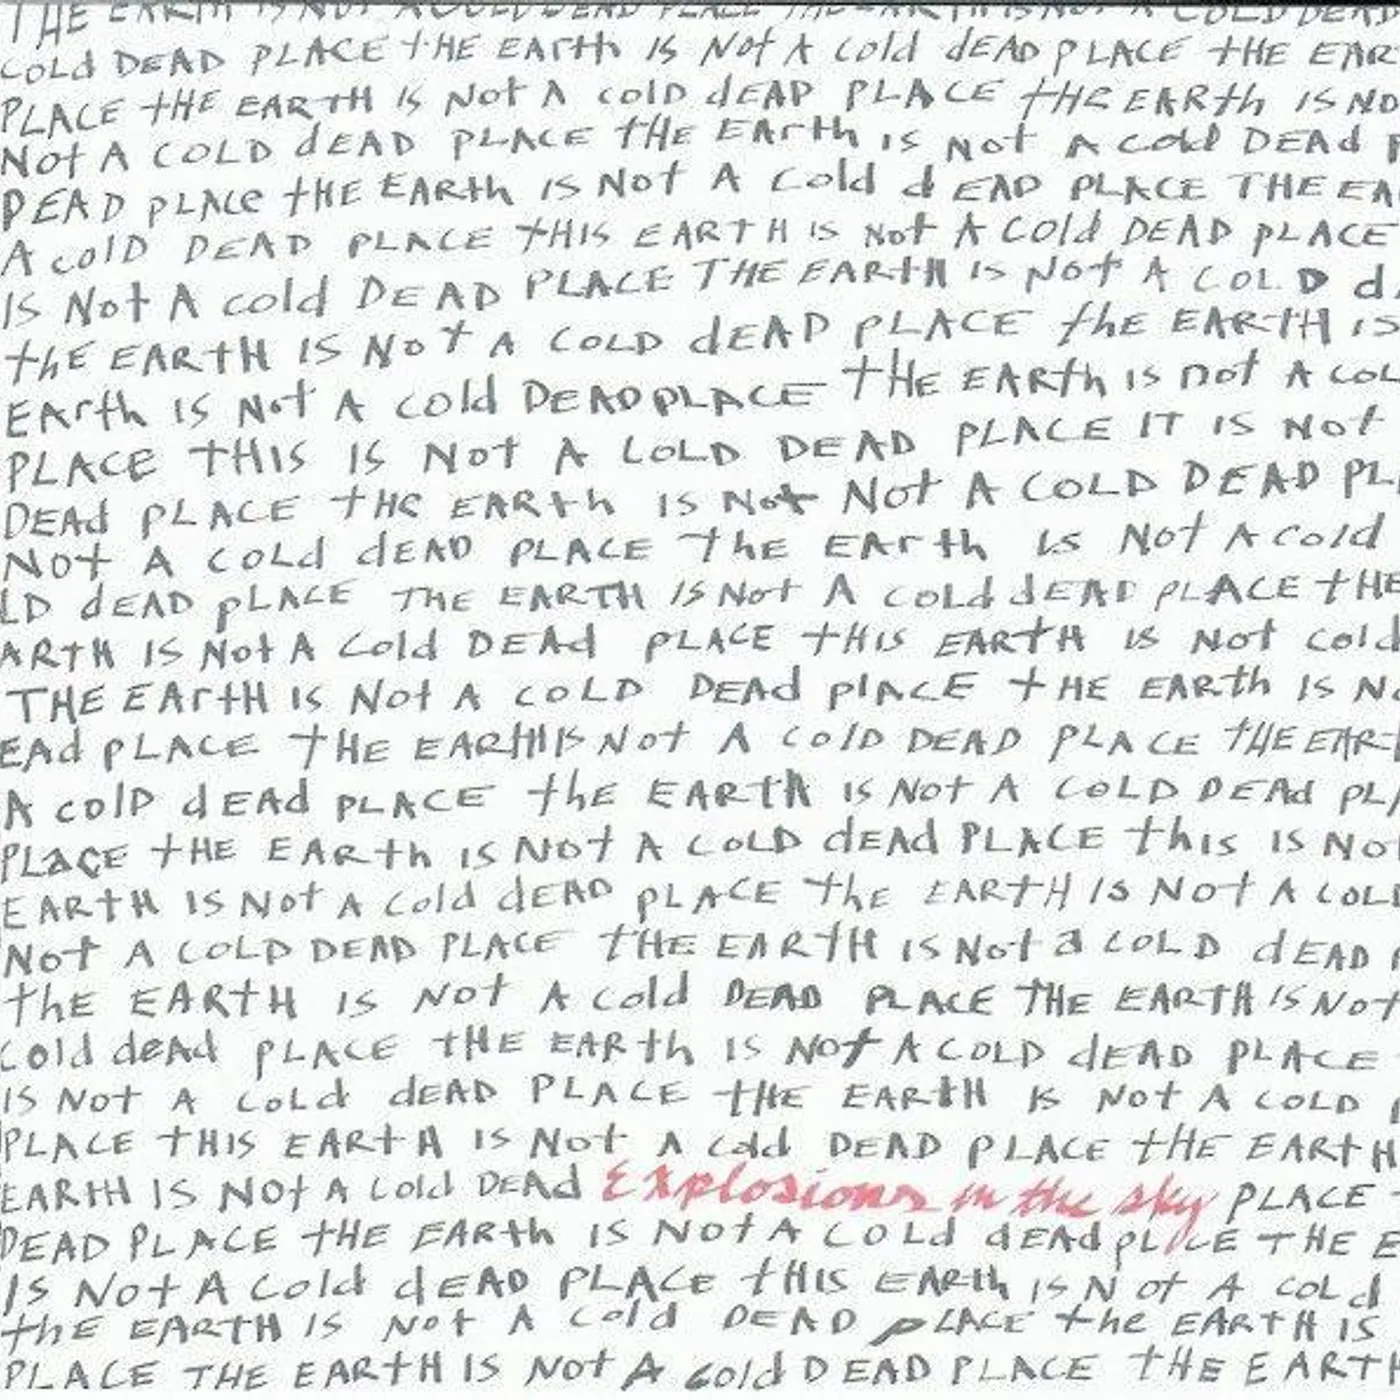 THE EARTH IS NOT A COLD DEAD PLACE THE EARTH IS NOT A COLD DEAD
COLd DEAD PLACE tHE EARth IS Not A Cold dEAD PLACE tHE EAR
PLACE tHE EARTH IS Not A ColD dEAD PLACE tHE EARth IS NO
Not A COLD dEAD PLACE tHE EArth is Not A Cold DEAd P
DEAD pLACe tHE EARth IS Not A Cold d EAD PLACE THE EA
A ColD DEAD PLACE tHIS EARTH IS Not A Cold DEAD pLACE
IS Not A Cold DEAD PLACE THE EARtH IS Not A COLD dA
thE EARtH IS Not A COLD dEAD PLACE thE EARtH IS
EArth IS Not A Cold DEADPLACE tHE EARth IS not A COL
PLACE tHIS IS Not A LOLD DEAD PLACE IT IS Not
DEAd PLACE tHe EARth IS Not Not A COLD DEAD PL
Not A COLd dEAD PLACE thE EArth IS Not A Cold
LD dEAD pLACE THE EARTH IS Not A COLd dEAD pLACE tHE
ARTH IS Not A Cold DEAd PLACE tHIS EARtH IS Not Cold
THE EArtH IS Not A COLD DEAd plACE tHE EARth IS N
EAd pLACE tHE EARtH IS Not A COlD DEAD PLACE tHE EART
A colD dEAd PLACE thE EARth IS Not A COLD DEAd PLA
PLaCE tHE EARth IS Not A COLD dEAd PLACE this IS No
EARtH IS Not A Cold dEAD pLACE the EARtH IS Not A COL
Not A COLD DEAD PLACE tHE EARtH IS Not a COLD dEAD P
thE EARtH IS Not A Cold DEAD PLACE THE EARTH IS Not
Cold deAd pLACE tHE EARth IS Not A COLD dEAD PLACE
IS Not A COLd dEAD PLACE tHE EARtH IS Not A COLD P
PLACE tHIS EARtH IS Not A Cold DEAD PLACE tHE EARTH
EARtH IS NOt A Cold DEAd Explosions in the sky PLACE
DEAD PLACE tHE EARth IS Not A COLd dEAd pLACE THE E
IS Not A Cold dEAD PLACE tHIS EARth IS Not A COLd
thE EARtH IS Not A Cold DEAD pLACE the EARtH IS
PLACE THE EARtH IS Not A Cold DEAD PLACE tHE EARTH